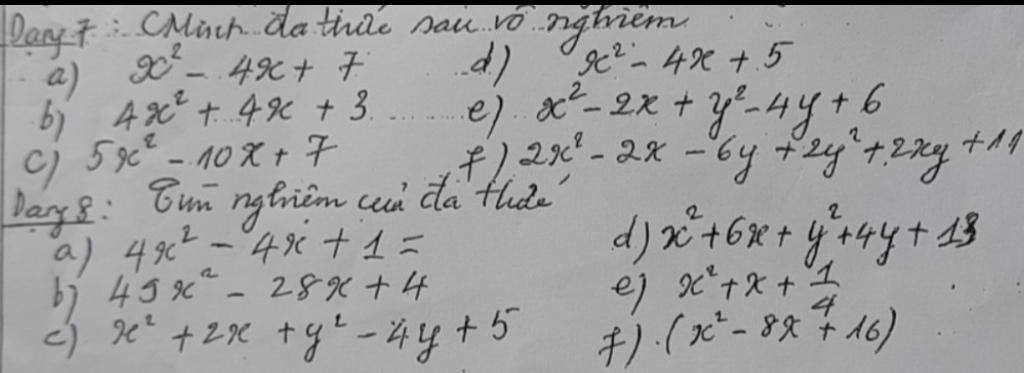 Dạng 7 : CMinh đa thức sau vô nghiệm
a) x² - 4x + 7 d) x² - 4x + 5
b) 4x² + 4x + 3 e) x² - 2x + y² - 4y + 6
c) 5x² - 10x + 7 f) 2x² - 2x - 6y + 2y² + 2xy + 11
Dạng 8 : Tìm nghiệm của đa thức
a) 4x² - 4x + 1 = d) x² + 6x + y² + 4y + 13
b) 49x² - 28x + 4 e) x² + x + 1/4
c) x² + 2x + y² - 4y + 5 f) (x² - 8x + 16)